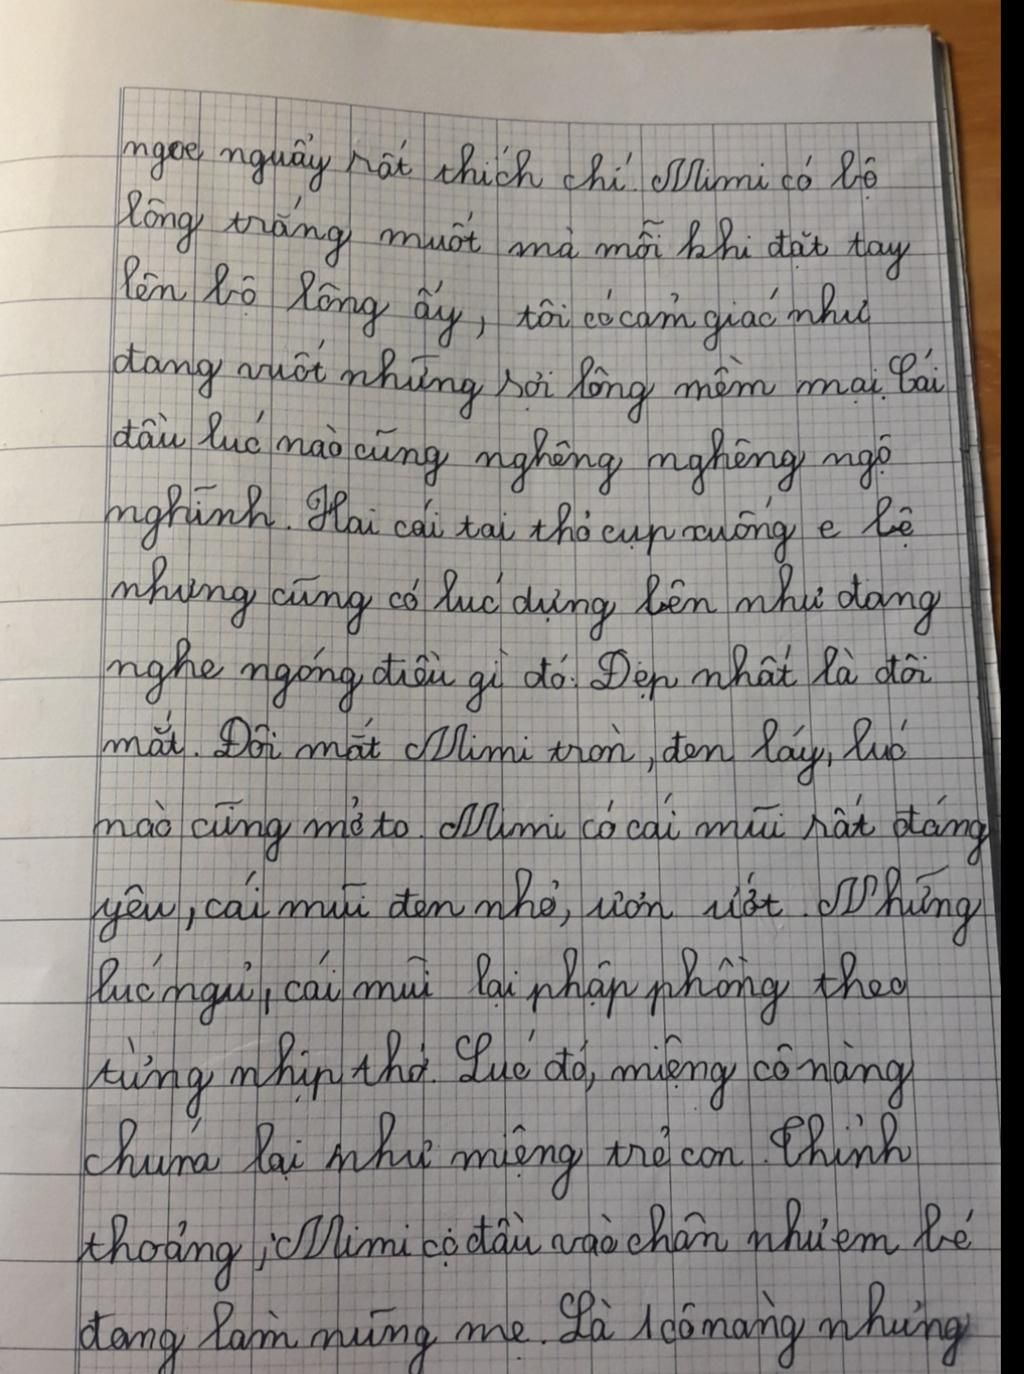 ngoe nguẩy rất thích chí. Mimi có bộ
lông trắng muốt mà mỗi khi đặt tay
lên bộ lông ấy, tôi có cảm giác như
đang vuốt những sợi lông mềm mại. Cái
đầu lúc nào cũng nghênh nghênh ngộ
nghĩnh. Hai cái tai thỏ cụp xuống e lệ
nhưng cũng có lúc dựng lên như đang
nghe ngóng điều gì đó. Đẹp nhất là đôi
mắt. Đôi mắt Mimi tròn, đen láy, lúc
nào cũng mở to. Mimi có cái mũi rất đáng
yêu, cái mũi đen nhỏ, ươn ướt. Những
lúc ngủ, cái mũi lại phập phồng theo
từng nhịp thở. Lúc đó, miệng cô nàng
chúm lại như miệng trẻ con. Thỉnh
thoảng, Mimi cọ đầu vào chân như em bé
đang làm nũng mẹ. Là 1 cô nàng nhưng